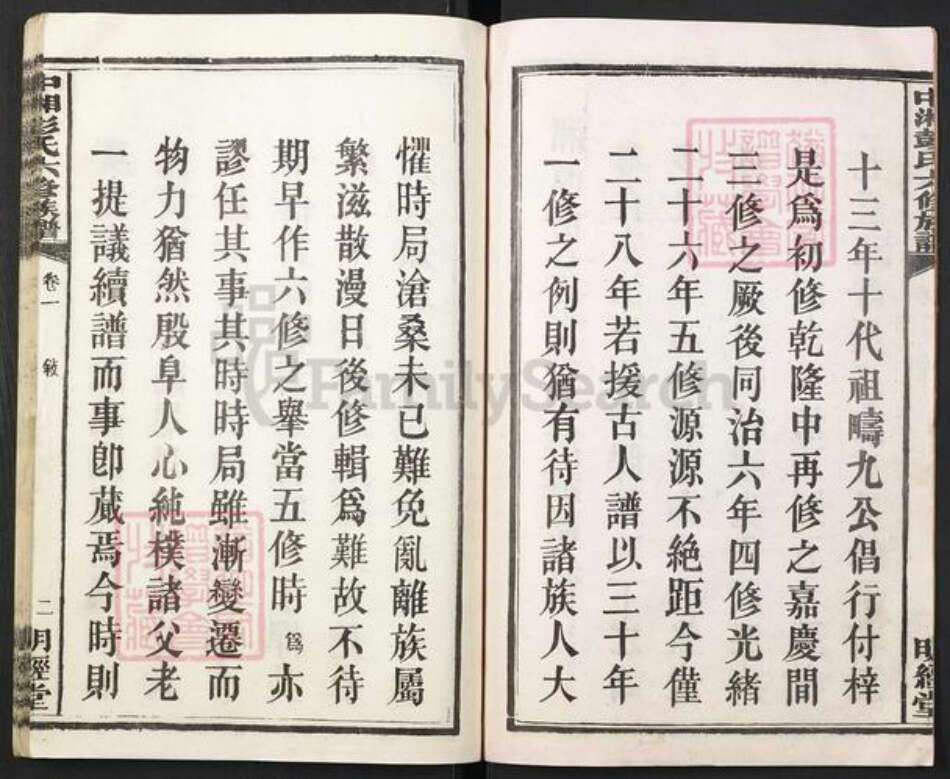 中湘彭氏六修族譜
明經堂
十三年十代祖疇九公倡行付梓
是爲初修乾隆中再修之嘉慶間
三修之厥後同治六年四修光緒
二十六年五修源源不絶距今僅
二十八年若援古人譜以三十年
一修之例則猶有待因諸族人大
懼時局滄桑未已難免亂離族屬
繁滋散漫日後修輯爲難故不待
期早作六修之舉當五修時爲亦
謬任其事其時時局雖漸變遷而
物力猶然殷阜人心純樸諸父老
一提議續譜而事卽蕆焉今時則
中湘彭氏六修族譜
卷一
敘
二
明經堂
FamilySearch